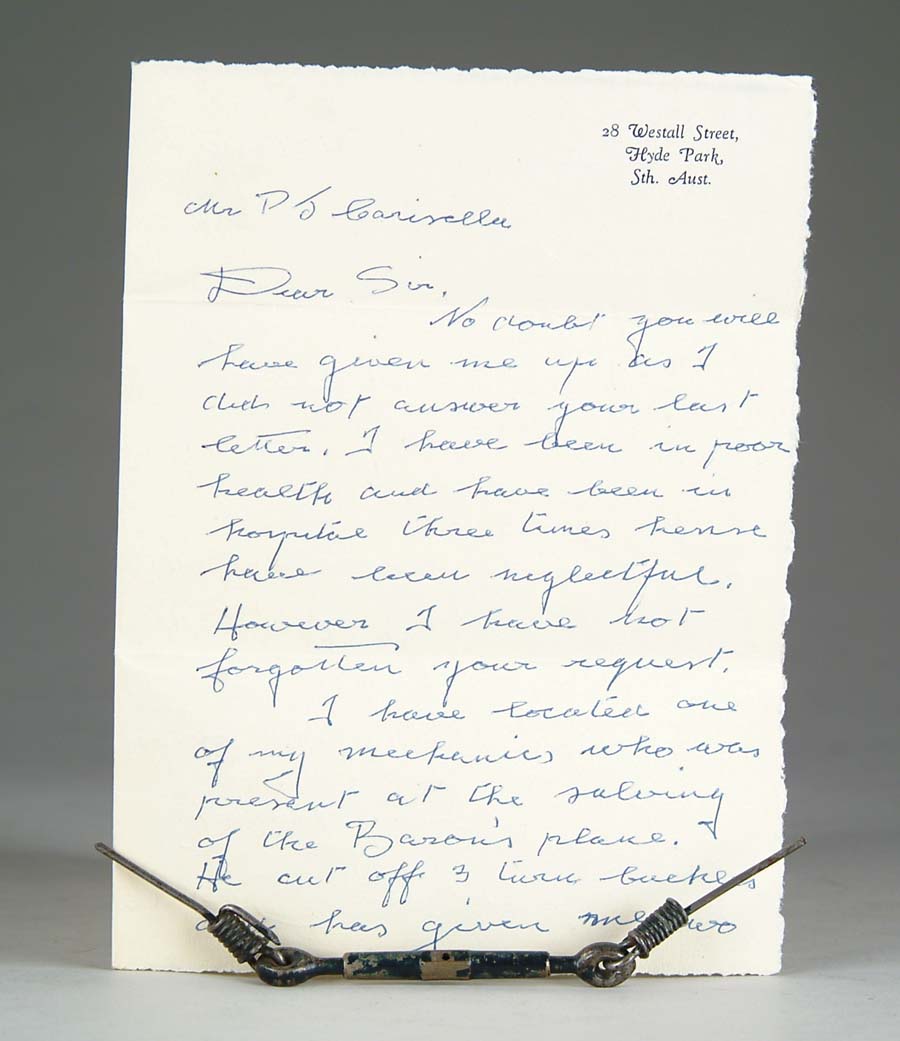 28 Westall Street,
Hyde Park,
Sth. Aust.
Mr P J Carisella
Dear Sir,
No doubt you will
have given me up as I
did not answer your last
letter. I have been in poor
health and have been in
hospital three times hense
have been neglectful.
However I have not
forgotten your request.
I have located one
of my mechanics who was
present at the salving
of the Baron's plane.
He cut off 3 turn buckels
has given me two